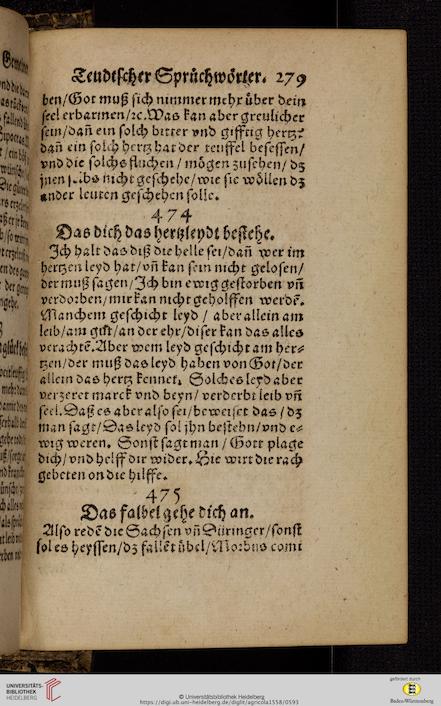 Teudtscher Sprüchwörter. 279
ben/Got muß sich nimmer mehr über dein
seel erbarmen/ꝛc.Was kan aber greulicher
sein/dañ ein solch bitter vnd gifftig hertz?
dañ ein solch hertz hat der teuffel besessen/
vnd die solchs fluchen/ mögen zusehen/ dz
jnen selbs nicht geschehe/wie sie wöllen dz
ander leuten geschehen solle.
474
Das dich das hertzleydt bestehe.
Jch halt das diß die helle sei/dañ wer im
hertzen leyd hat/vñ kan sein nicht gelosen/
der muß sagen/Jch bin ewig gestorben vñ
verdorben/mir kan nicht geholffen werdẽ.
Manchem geschicht leyd / aber allein am
leib/am gut/an der ehr/diser kan das alles
verachtẽ.Aber wem leyd geschicht am her-
tzen/der muß das leyd haben von Got/der
allein das hertz kennet. Solches leyd aber
verzeret marck vnd beyn/ verderbt leib vñ
seel. Daß es aber also sei/beweiset das / dz
man sagt/Das leyd sol jhn bestehn/vnd e-
wig weren. Sonst sagt man / Gott plage
dich/vnd helff dir wider. Hie wirt die rach
gebeten on die hilffe.
475
Das falbel gehe dich an.
Also redẽ die Sachsen vñ Düringer/sonst
sol es heyssen/dz fallẽt übel/Morbus comi
UNIVERSITÄTS-
BIBLIOTHEK
HEIDELBERG
© Universitätsbibliothek Heidelberg
https://digi.ub.uni-heidelberg.de/diglit/agricola1558/0593
gefördert durch
Baden-Württemberg